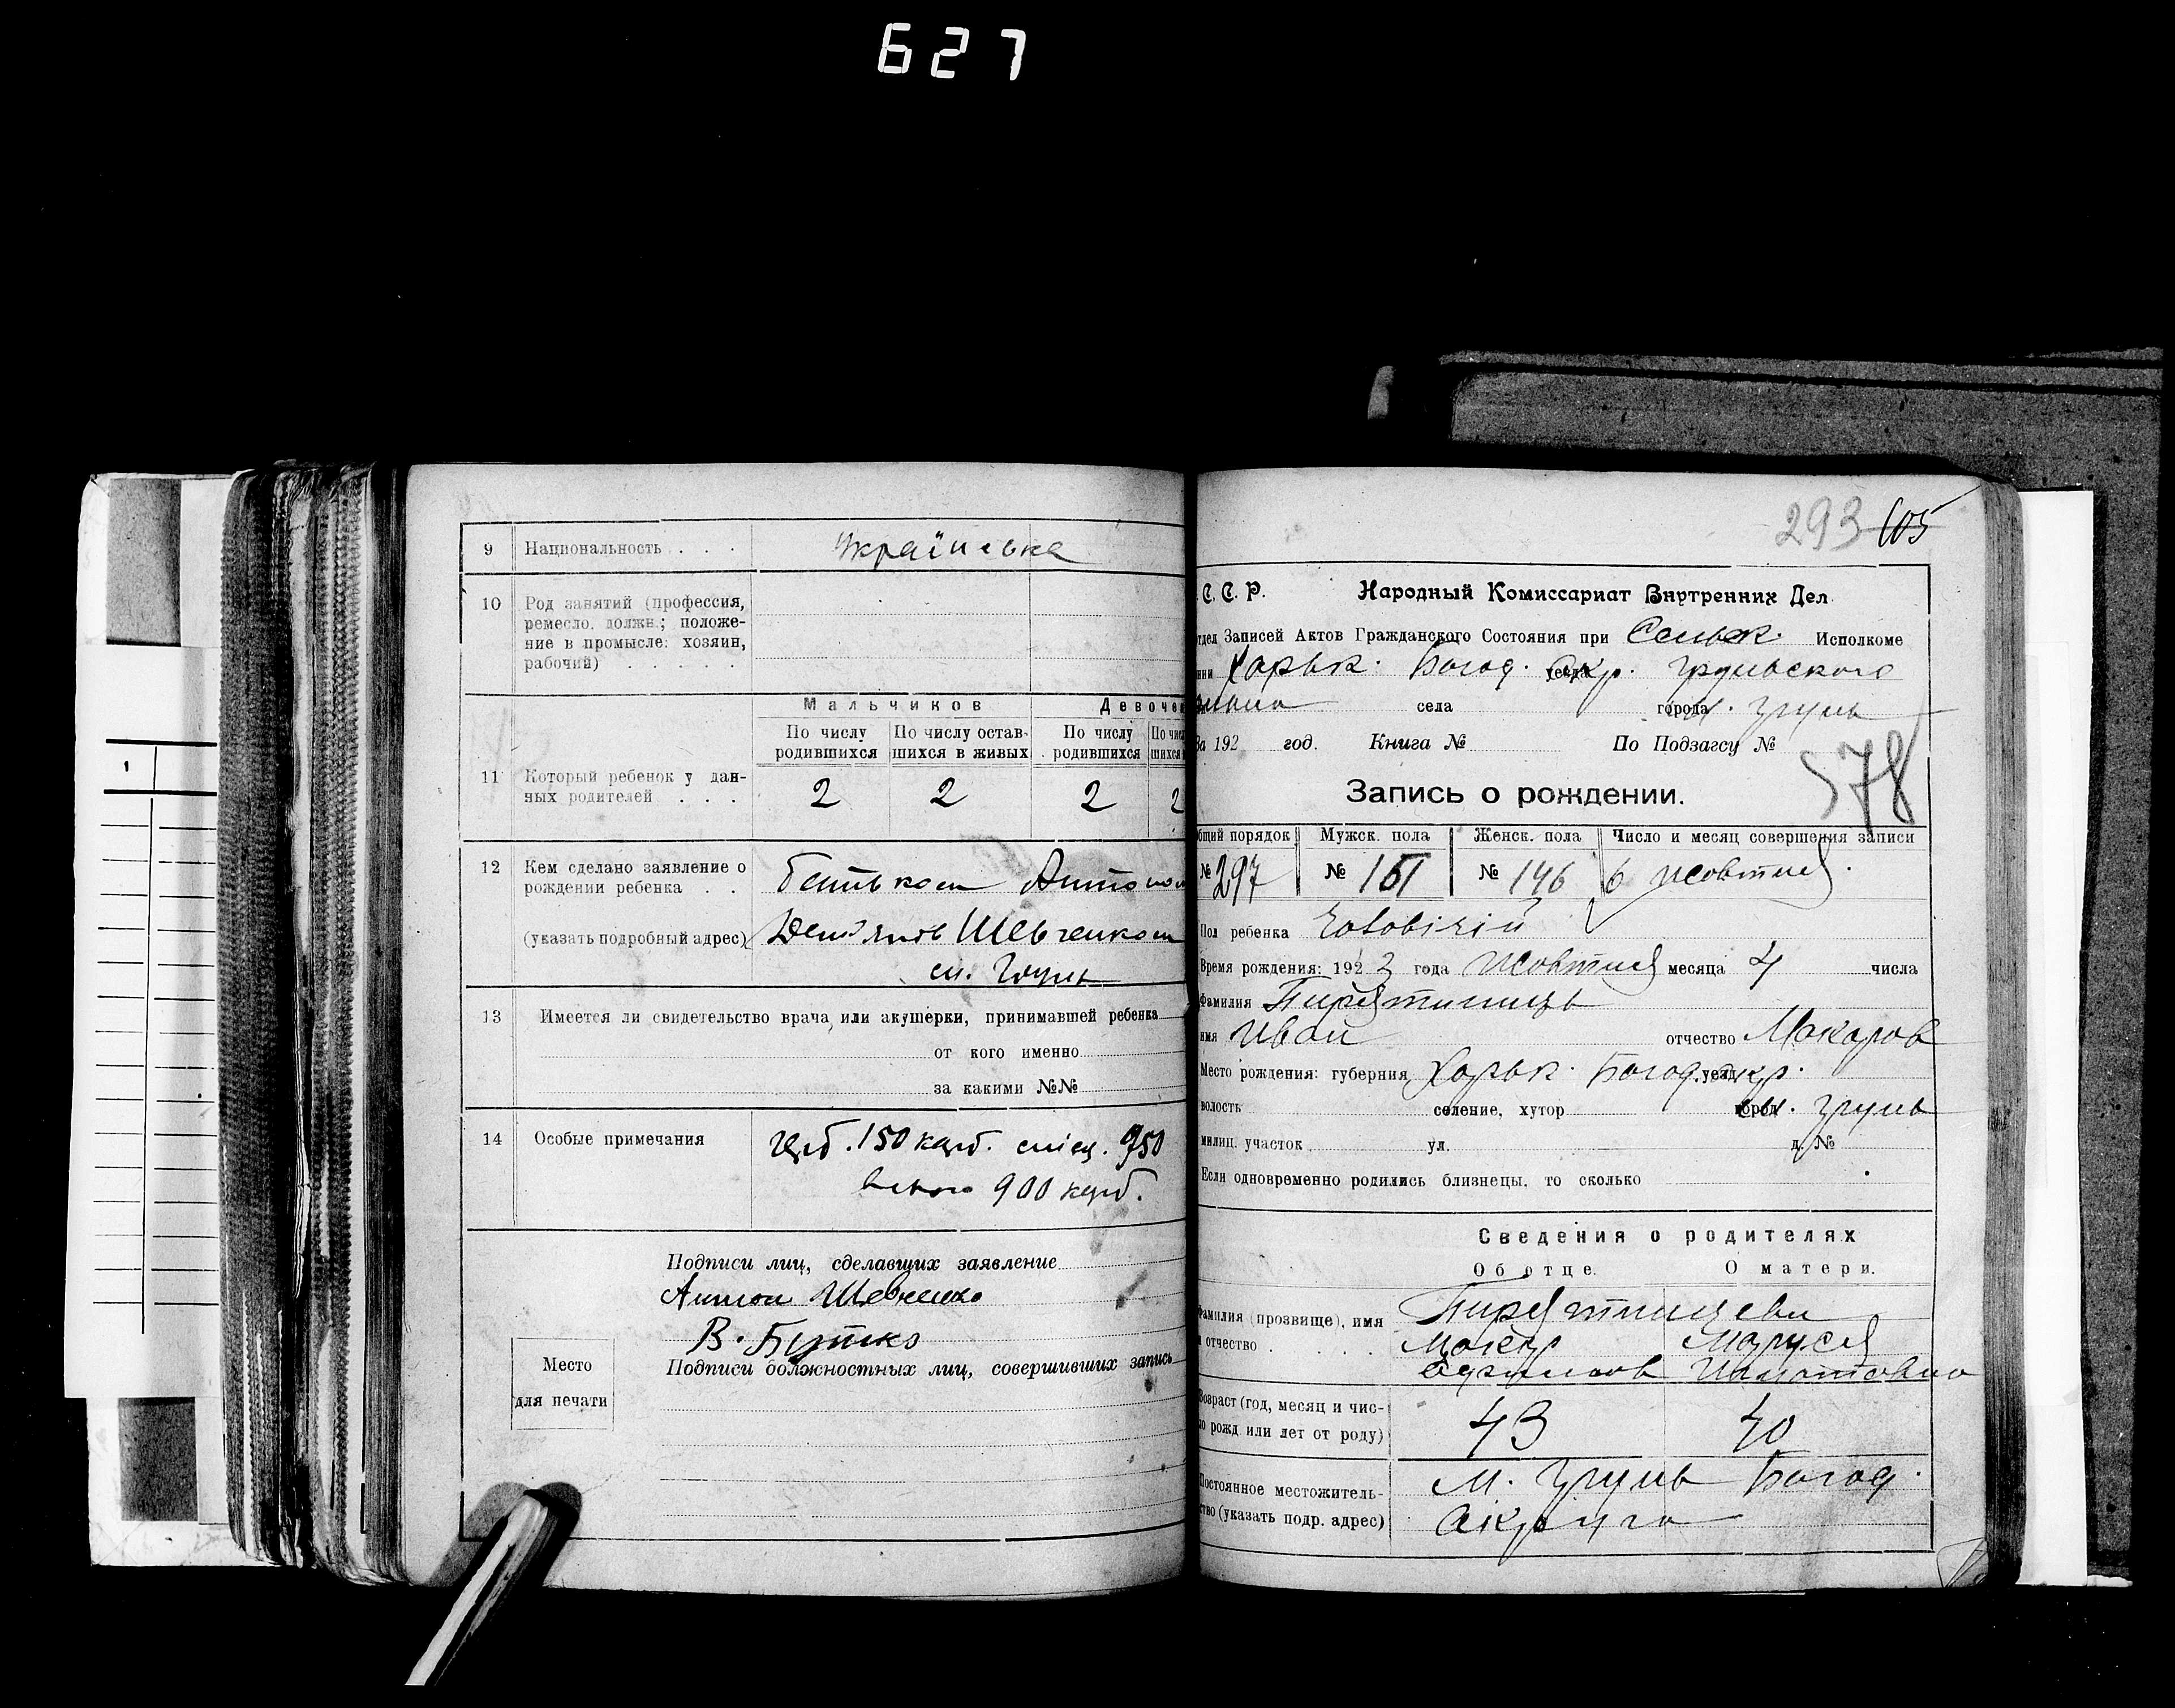 627
9 Национальность . . . Українська
10 Род занятий (профессия,
ремесло, должн.; положе-
ние в промысле: хозяин,
рабочий) . . . . .
Мальчиков Девочек
По числу родившихся По числу остав-шихся в живых По числу родившихся По чис шихся
11 Который ребенок у дан-
ных родителей . . . 2 2 2 2
12 Кем сделано заявление о
рождении ребенка . . батьком Антоном
(указать подробный адрес) Шевченком
м. Грунь
13 Имеется ли свидетельство врача или акушерки, принимавшей ребенка
от кого именно
за какими №№
14 Особые примечания герб. 150 карб. місц. 750
всього 900 карб.
Подписи лиц, сделавших заявление
Антон Шевченко
В. Бутко
Место
для печати
Подписи должностных лиц, совершивших запись
293 105
С. С. Р. Народный Комиссариат Внутренних Дел
тдел Записей Актов Гражданского Состояния при Сельск. Исполкоме
нии Харьк. Богод. уезда окр. Грунського
села города м. Грунь
За 192 год. Книга № По Подзагсу №
578
Запись о рождении.
бщий порядок Мужск. пола Женск. пола Число и месяц совершения записи
№ 297 № 151 № 146 6 жовтня
Пол ребенка чоловічій
Время рождения: 192 3 года Жовтня месяца 4 числа
Фамилия Пирятинець
имя Иван отчество Макаров
Место рождения: губерния Харьк. Богод. уезд окр.
волость селение, хутор город м. Грунь
милиц. участок ул. д. №
Если одновременно родились близнецы, то сколько
Сведения о родителях
Об отце. О матери.
Фамилия (прозвище), имя
и отчество . . . .
Макар Маруся
Игнатовна
Возраст (год, месяц и чис-
ло рожд или лет от роду) 43 40
Постоянное местожитель-
ство (указать подр. адрес) М. Грунь Богод.
Округа